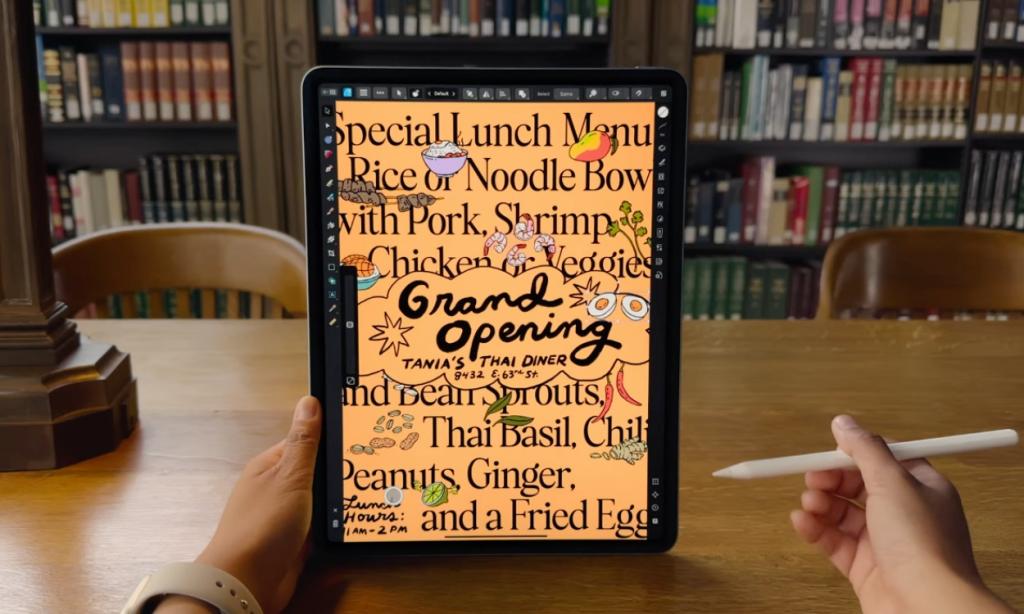 Default
Select
Same
Special Lunch Menu
Rice or Noodle Bow
with Pork, Shrimp
Chicken or Veggies
Grand
Opening
TANIA'S THAI DINER
8432 E. 63RD St.
and Bean Sprouts,
Thai Basil, Chili
Peanuts, Ginger,
Lunch
Hours:
1AM-2PM
and a Fried Egg